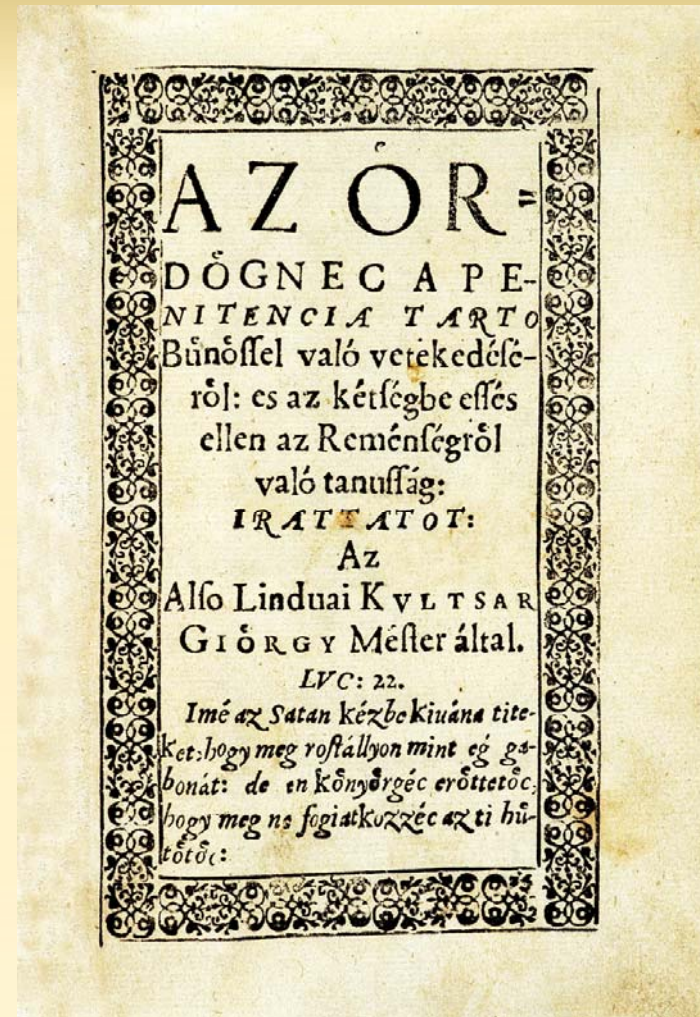 AZ ÓR=
DŏGNEC A PE-
NITENCIA TARTO
Bűnŏſſel való vetekedéſé-
rŏl: es az kétſégbe eſſés
ellen az Reménſégrŏl
való tanuſſág:
IRATTATOT:
Az
Alſo Linduai KVLTSAR
GIŏRGY Méſter által.
LVC: 22.
Imé az Satan kézbe kiuána tite-
ket: hogy meg roſtállyon mint eǵ ga-
bonát: de en kŏnyŏrgéc erŏttetŏc,
hogy meg ne fogiatkozzéc az ti hű-
tŏtŏc: